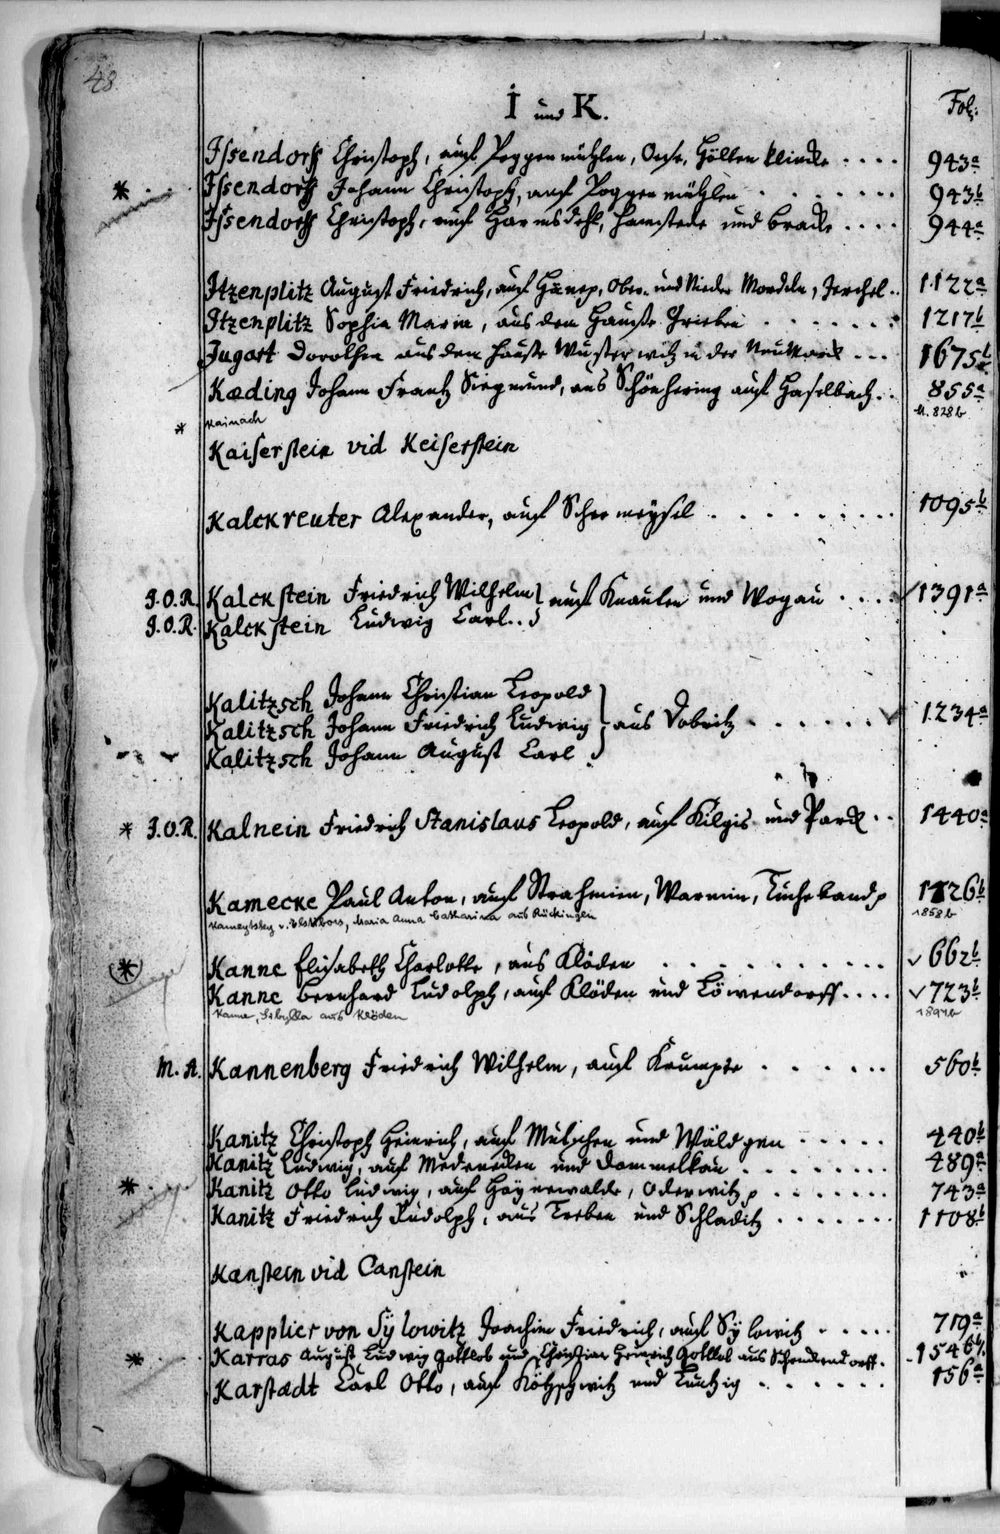 48.
I und K.
Fol:
Issendorff Christoph, auf Poggenmühlen, Oese, Höllen klincke . . . . 943a
* . . Issendorff Johann Christoph, auf Poggenmühlen . . . . . . 943b
Issendorff Christoph, auf Harmsdohl, Hamstede und Bracke . . . . 944a
Itzenplitz August Friedrich, auf Ober- und Nieder , Jerchel . . 1122a
Itzenplitz Sophia Maria, aus dem Hause Grieben . . . . . . . 1217b
Jugart Dorothea aus dem Hause Wusterwitz in der Neumarck . . . 1675b
Kæding Johann Frantz Siegmund, aus Schönhering auf Haselbach . . 855a
* Kainach M. 828b
Kaiserstein vid Keiserstein
Kalckreuter Alexander, auf Schermeysel . . . . . . . . . 1095b
J.O.R. Kalckstein Friedrich Wilhelm } auf Knauten und Wogau . . . . 1391a
J.O.R. Kalckstein Ludwig Carl . . }
Kalitzsch Johann Christian Leopold }
Kalitzsch Johann Friedrich Ludwig } aus Dobritz . . . . . . 1234a
Kalitzsch Johann August Carl }
* J.O.R. Kalnein Friedrich Stanislaus Leopold, auf Kilgis und Parck . . 1440a
Kamecke Paul Anton, auf Strachmin, Warnin, Tuchebandp 1126b
Kameytsky v. Elstibors, Maria Anna Catharina aus Rückingen 1858b
(*) Kanne Elisabeth Charlotte, aus Klöden . . . . . . . . . . 662b
Kanne Bernhard Ludolph, auf Klöden und Löwendorff . . . . 723b
Kanne, Sibylla aus Klöden 1894b
M. A. Kannenberg Friedrich Wilhelm, auf Krumpke . . . . . . 560b
Kanitz Christoph Heinrich, auf und Wäldgen . . . . . 440b
Kanitz Ludwig, auf Medenicken und Dommelkau . . . . . . . . 489a
* . Kanitz Otto Ludwig, auf Haynewalde, Oderwitzp . . . . . . . 743a
Kanitz Friedrich Rudolph, aus Treben und Schladitz . . . . . . . 1108b
Kanstein vid Canstein
Kapplier von Sÿlowitz Joachim Friedrich, auf Sÿlowitz . . . . . 719a
* . . Karras August Ludwig Gottlob und Christian Heinrich Gottlob aus Schenckendorff . 1546b
Karstædt Carl Otto, auf Kötzschwitz und . . . . . . . 156a